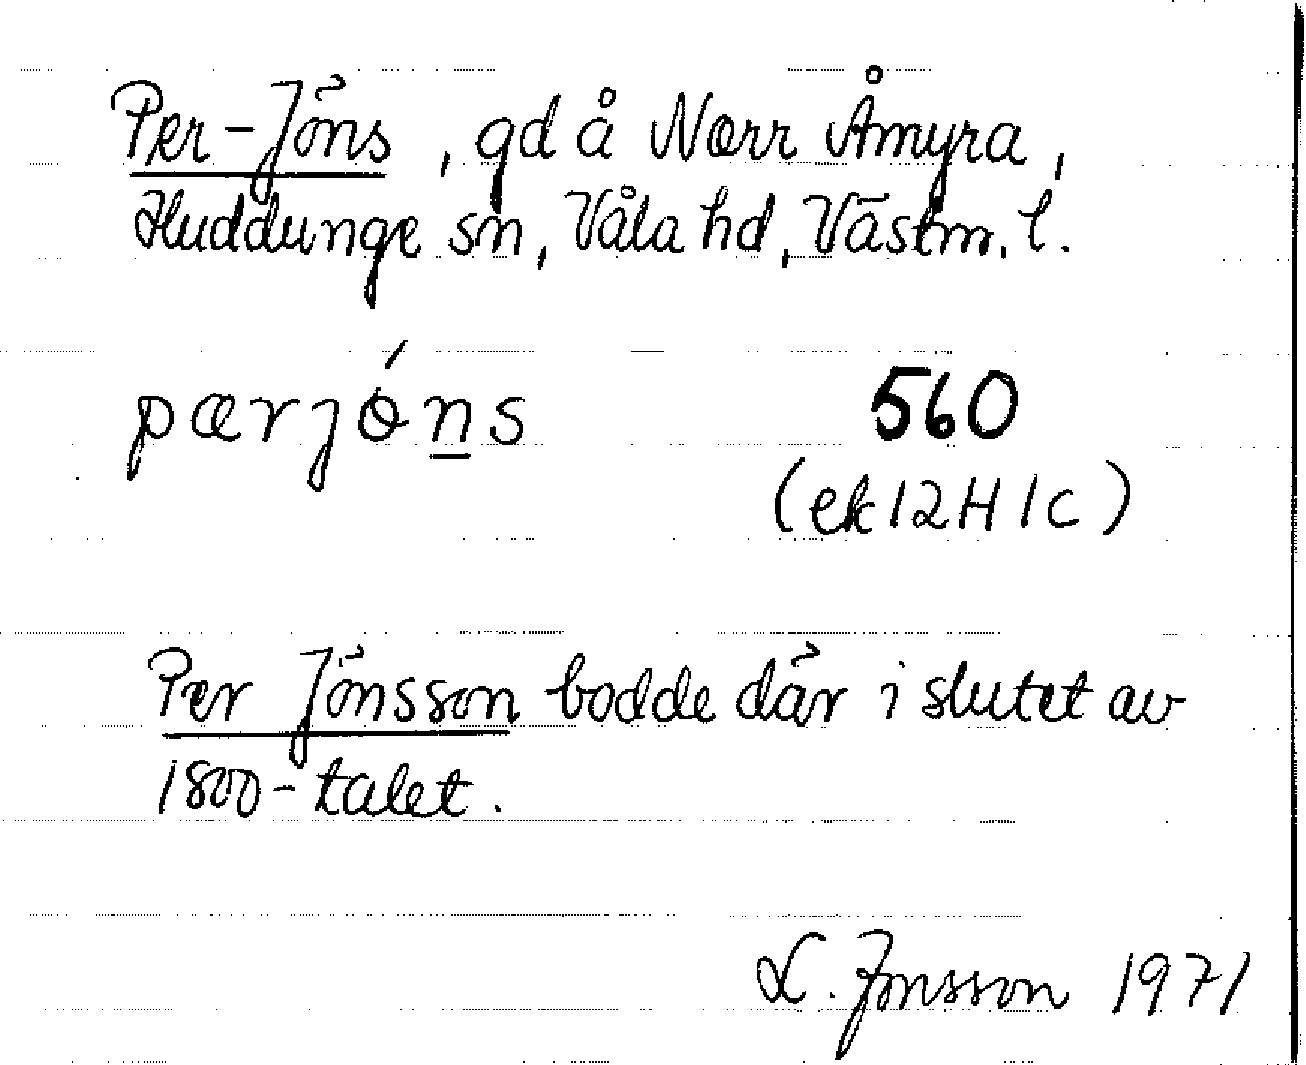 Per-Jöns, gd å Norr Åmyra,
Huddunge sn, Våla hd, Västm. l.
pærjón̲s
560
(ek 12H 1c)
Per Jönsson bodde där i slutet av
1800-talet.
L. Jonsson 1971